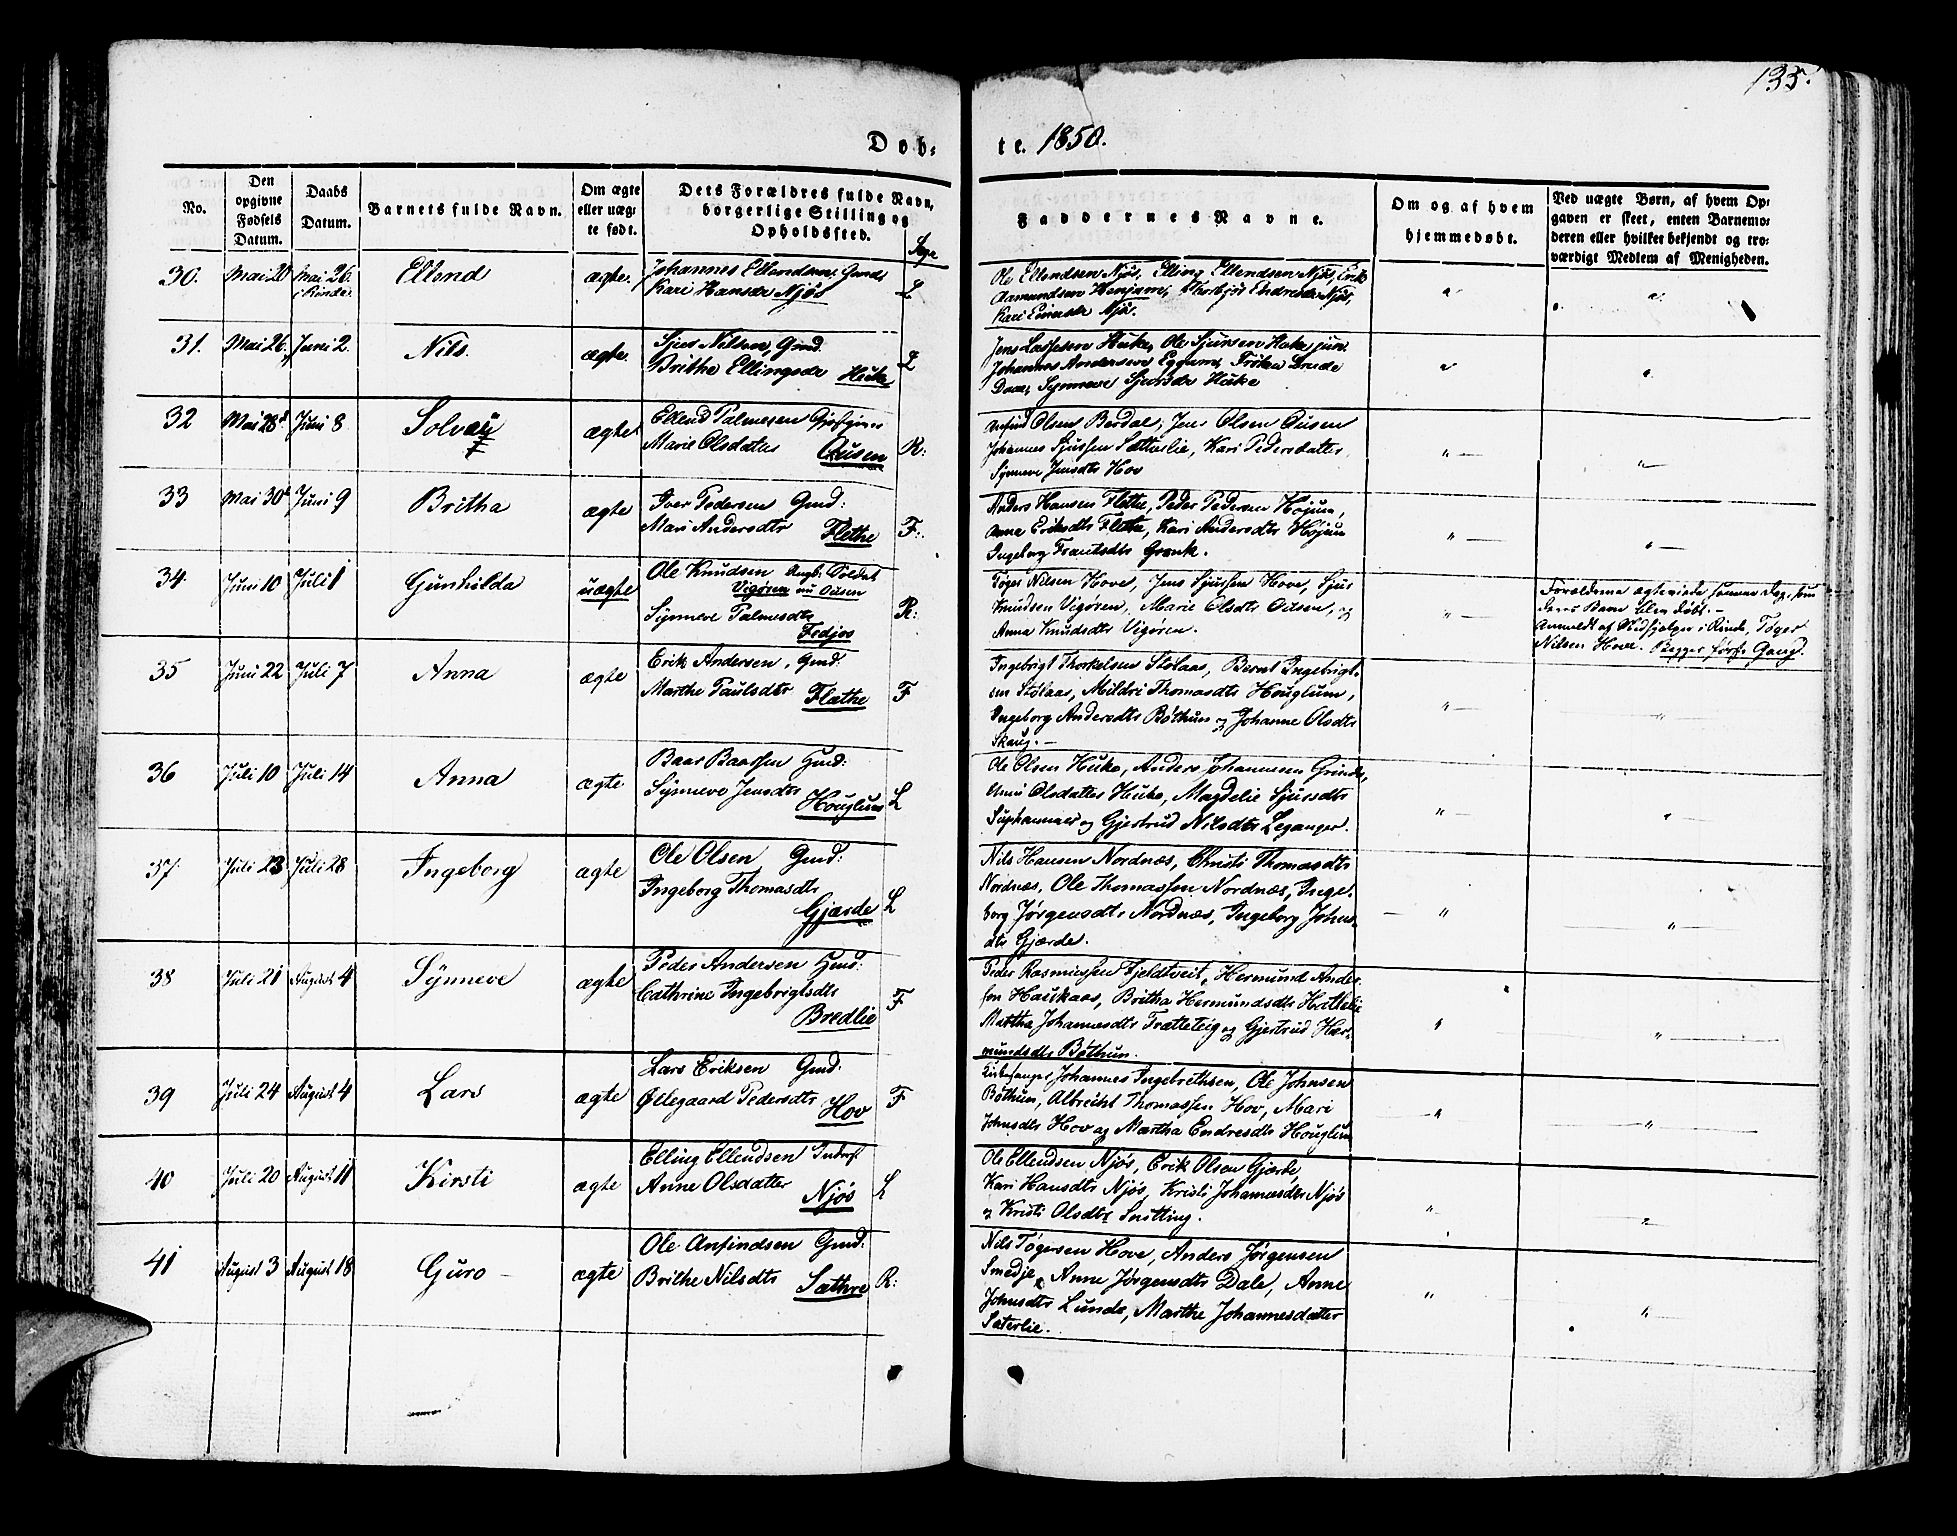 135.
Døb-
te. 1850.
No.
Den
opgivne
Fødsels
Datum.
Daabs
Datum.
Barnets fulde Navn.
Om ægte
eller uæg-
te født.
Dets Forældres fulde Navn,
borgerlige Stilling og
Opholdssted.
Sogn
Faddernes Navne.
Om og af hvem
hjemmedøbt.
Ved uægte Børn, af hvem Op-
gaven er skeet, enten Barnemo-
deren eller hvilket bekjendt og tro-
værdigt Medlem af Menigheden.
30. Mai 20 Mai 26. Ellend ægte. Johannes Ellendsen, Gmd.
i Rinde.
Kari Hansdr Njøs L
Ole Ellendsen Njøs, Elling Ellendsen Njøs, Erik
Aamundsen Henjum, Thorbjør Endresdr Njøs,
Kari Njøs.
31. Mai 26. Juni 2. Nils. ægte. Sjur Nilsen, Gmd.
Brithe Ellingsdr Huke L
Jens Lassesen Huke, Ole Sjursen Huke jun.
Johannes Andersen Eggum,
Synneve Sjursdr Huke
32 Mai 28d Juni 8 Solvei ægte Ellend Palmesen
Marie Olsdatter Øusen R:
Anfind Olsen Berdal, Jens Olsen Øusen
Johannes Sjursen Sætterlie, Kari Pedersdatter,
Synneve Jensdtr Hov
33 Mai 30d Juni 9 Britha ægte Iver Pedersen Gmd:
Mari Andersdtr Flethe F:
Anders Hansen Flethe, Peder Pedersen Højum,
Anna Eriksdtr Flethe, Kari Andersdtr Højum
Ingeborg Frantsdtr Grønk.
34. Juni 10 Juli 1 Gunhilda uægte Ole Knudsen Ungk: Soldat
Vigøren nu Øusen
Synneve Palmesdtr
Fedjos R:
Tøger Nilsen Hove, Jens Sjursen Hove, Sjur
Knudsen Vigøren, Marie Olsdtr Øusen, og
Anna Knudsdtr Vigøren.
Forældrene ægteviede samme Dag, som
deres Barn blev døbt. -
Anmeldt af Medhjelper i Rinde, Tøger
Nilsen Hove. Begges første Gang.
35 Juni 22 Juli 7 Anna ægte Erik Andersen, Gmd.
Marthe Paulsdtr Flæthe F
Ingebrigt Thorkelsen Stølaas, Bernt Ingebrigt-
sen Stølaas, Mildri Thomasdtr Houglum,
Ingeborg Andersdtr Bøthun og Johanne Olsdtr
Skaug. -
36 Juli 10 Juli 14 Anna ægte Baar Baarssen Gmd:
Synneve Jensdtr Houglum L
Ole Olsen Huke, Anders Johannesen Grinde,
Anni Olsdatter Huke, Magdelie Sjursdtr
Suphammer og Gjertrud Nilsdtr Leganger.
37. Juli 13 Juli 28 Ingeborg ægte Ole Olsen Gmd:
Ingeborg Thomasdtr
Gjærde L
Nils Hansen Nordnæs, Christi Thomasdtr
Nordnæs, Ole Thomassen Nordnæs, Inge-
borg Jørgensdtr Nordnæs, Ingeborg Johns-
dtr Gjærde.
38 Juli 21 August 4 Synneve ægte Peder Andersen Gmd:
Cathrine Ingebrigtsdtr
Bredlie F
Peder Rasmussen Fjeldtveit, Hermund Ander-
sen Haukaas, Britha Hermundsdtr Hattelie
Martha Johannesdtr Trætteteig og Gjertrud Her-
mundsdtr Bøthun.
39 Juli 24 August 4 Lars ægte Lars Eriksen Gmd.
Øllegaard Pedersdtr Hov F
Kirkesanger Johannes Ingebrethsen, Ole Johnsen
Bøthun, Albrecht Thomassen Hov, Mari
Johnsdtr Hov og Martha Endresdtr Houglum
40 Juli 20 August 11 Kirsti ægte Elling Ellendsen Inderst
Anne Olsdatter Njøs L
Ole Ellendsen Njøs, Erik Olsen Gjærde,
Kari Hansdtr Njøs, Kristi Johannesdtr Njøs
og Kristi Olsdtr Snitting.
41 August 3 August 18 Guro ægte Ole Anfindsen Gmd:
Brithe Nilsdtr Sæthre R:
Nils Tøgersen Hove, Anders Jørgensen
Smedje, Anne Jørgensdtr Dale, Anne
Johnsdtr Lunde, Marthe Johannesdatter
Sæterlie.